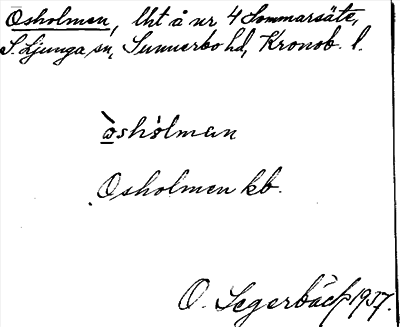 Osholmen, lht å nr 4 Sommarsäte,
S. Ljunga sn, Sunnerbo hd, Kronob. l.
òshólman
Osholmen kb.
O. Segerbäck 1937.